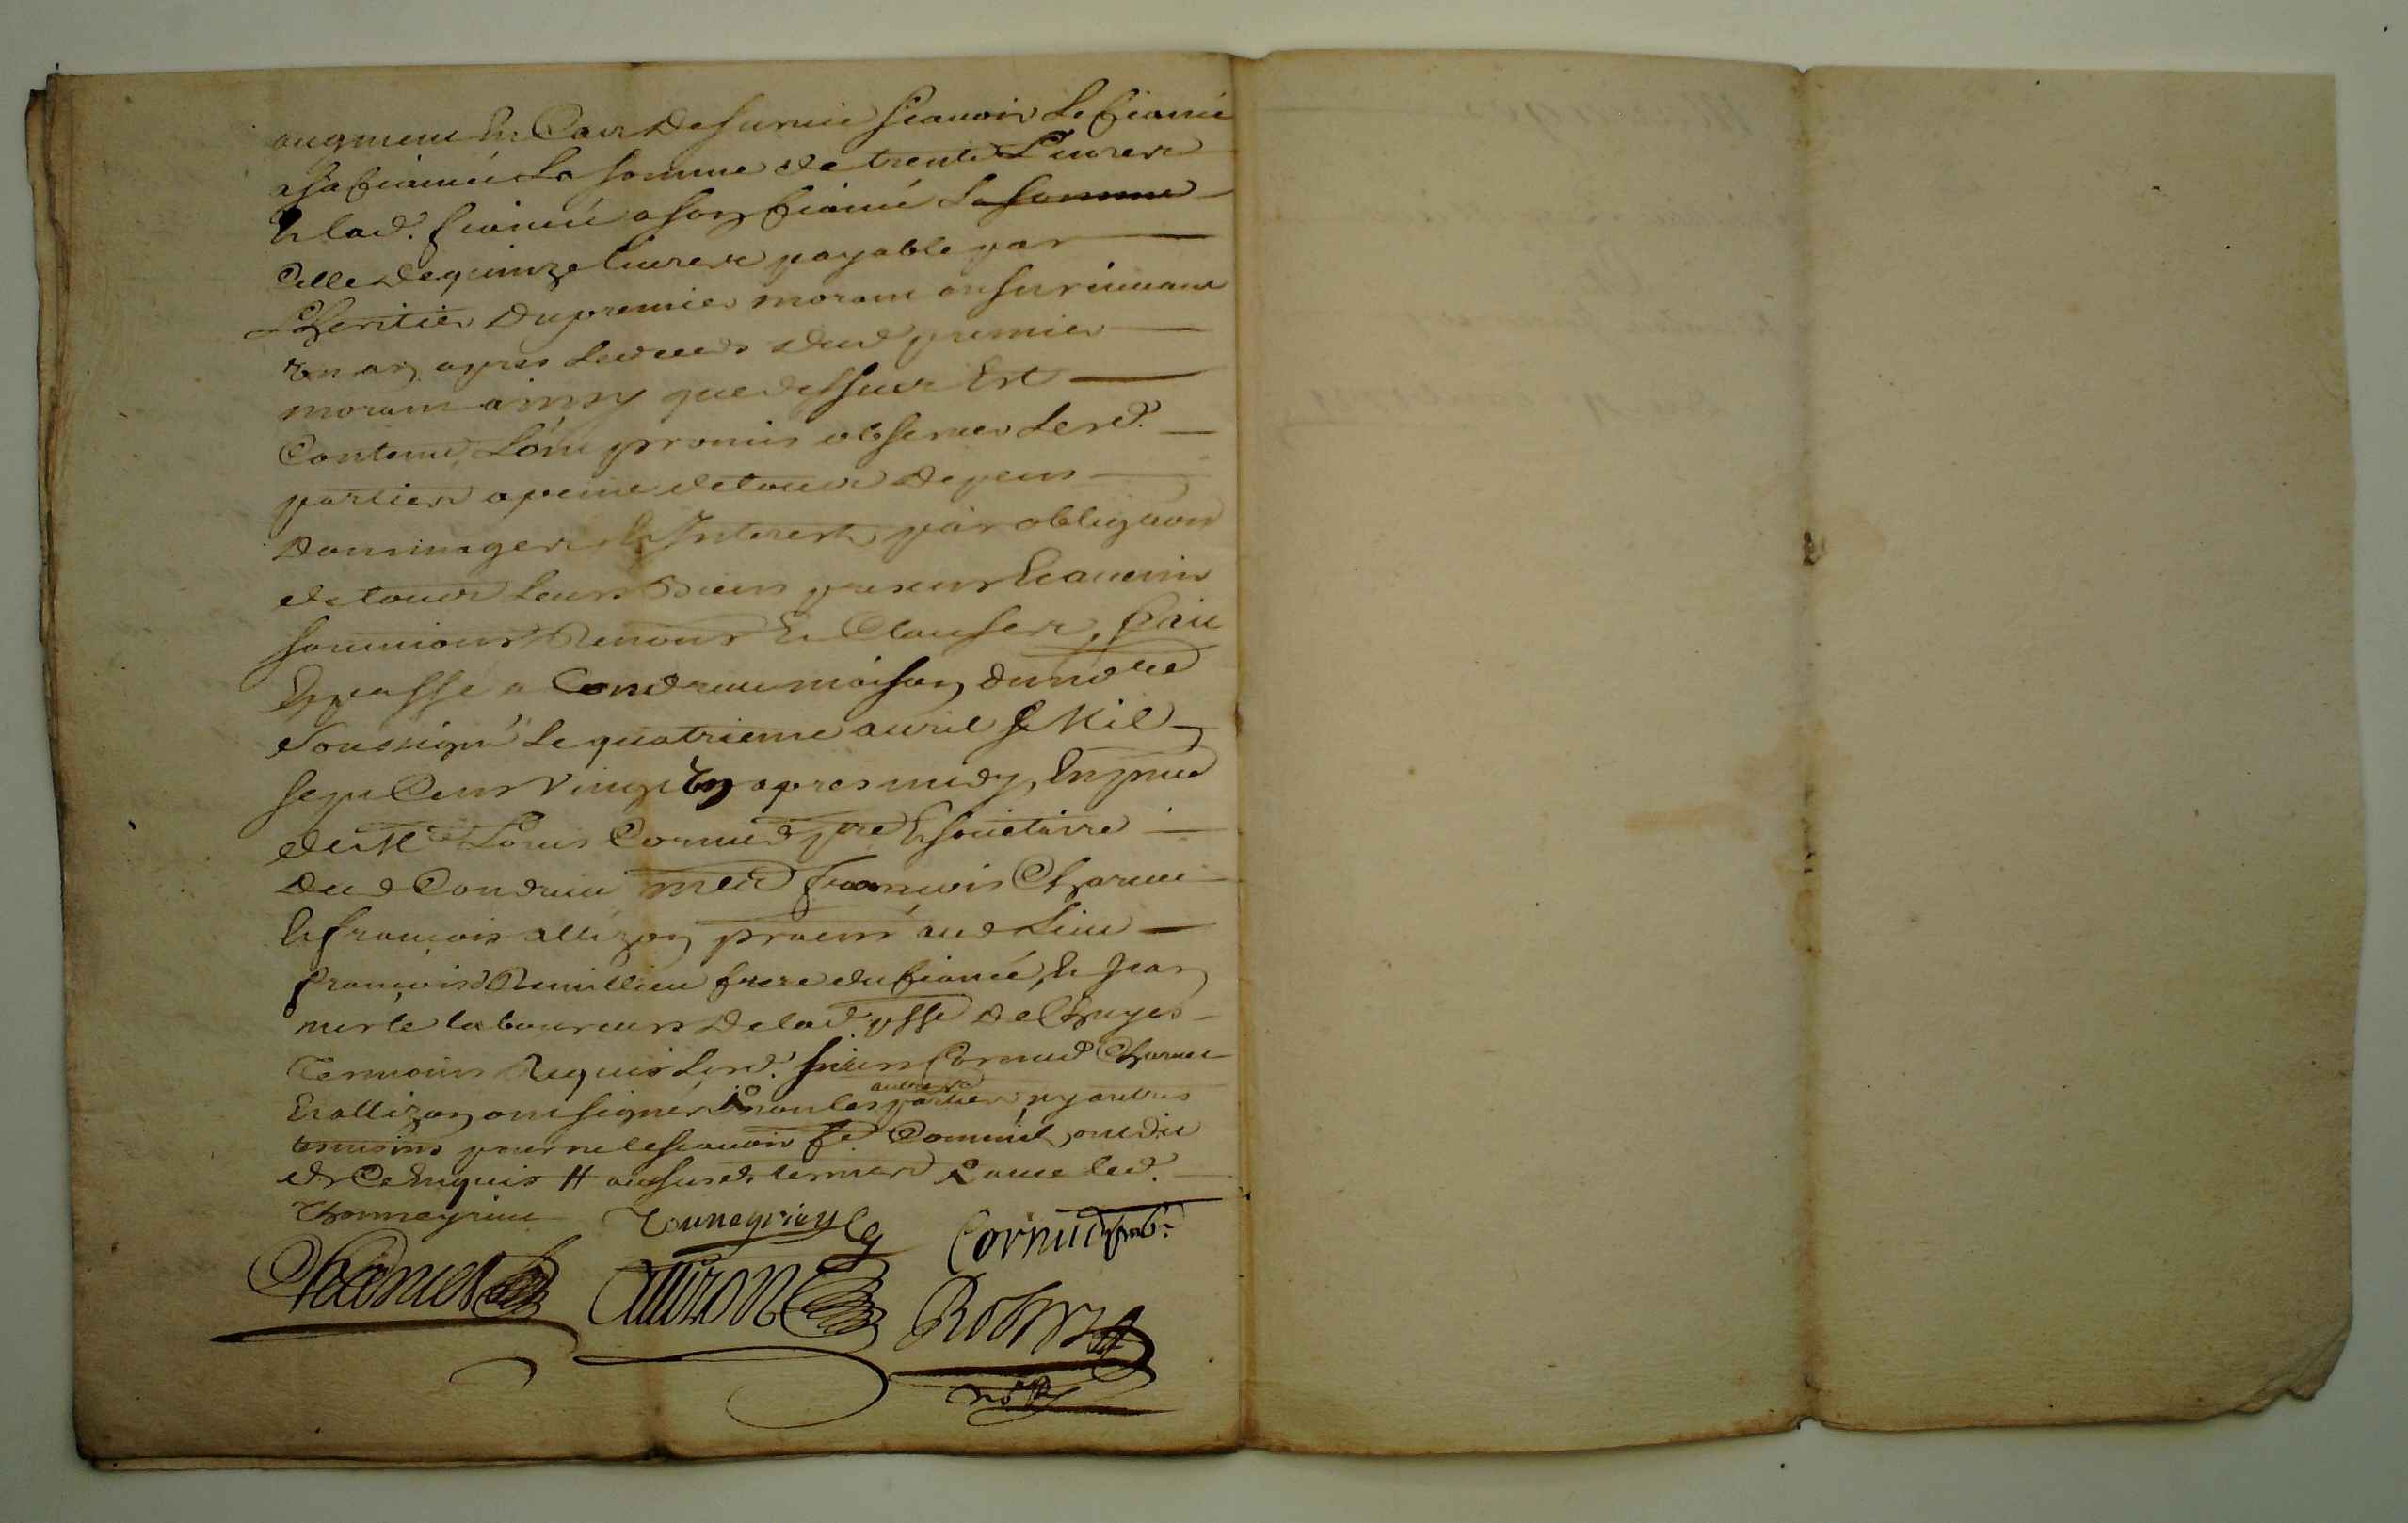 augment En Cas de survie scavoir Le fiancé
a sa fiancée La somme de trente Livres
Et lad. fiancée a son fiancé La somme
Celle de quinze livres payable par
L'heritier du premier morant au survivant
Un an apres Le deces dud premier
morant ainsy que dessus Est
Contenu L'ont promis observer Lesd.
parties a peine de tous depens
dommages Et Interests par obligaon
de tous Leurs Biens presens Et avenir
soumions Renons Et Clauses, fait
Et passé a Condrieu maison du nore
soussigné Le quatrieme avril Mil
sept Cens Vingt Un apres midy, En pnce
de Me Louis Cornud pre Et societaire
dud Condrieu François Charvet
Et françois allizon praticn aud Lieu
françois Remillieu frere du fiancé, Et Jean
merle laboureurs de lad. psse de Chuyes
Temoins Requis Lesd. srs Cornud Charvet
Et allizon ont signés non les autres parties ny autres
temoins pour ne le scavoir ont dit
de Ce Enquis # au susd. avec led.
Thonneyrieu
Toneyrieu Cornud pbr.
Charvet Allizon
Robin
nore